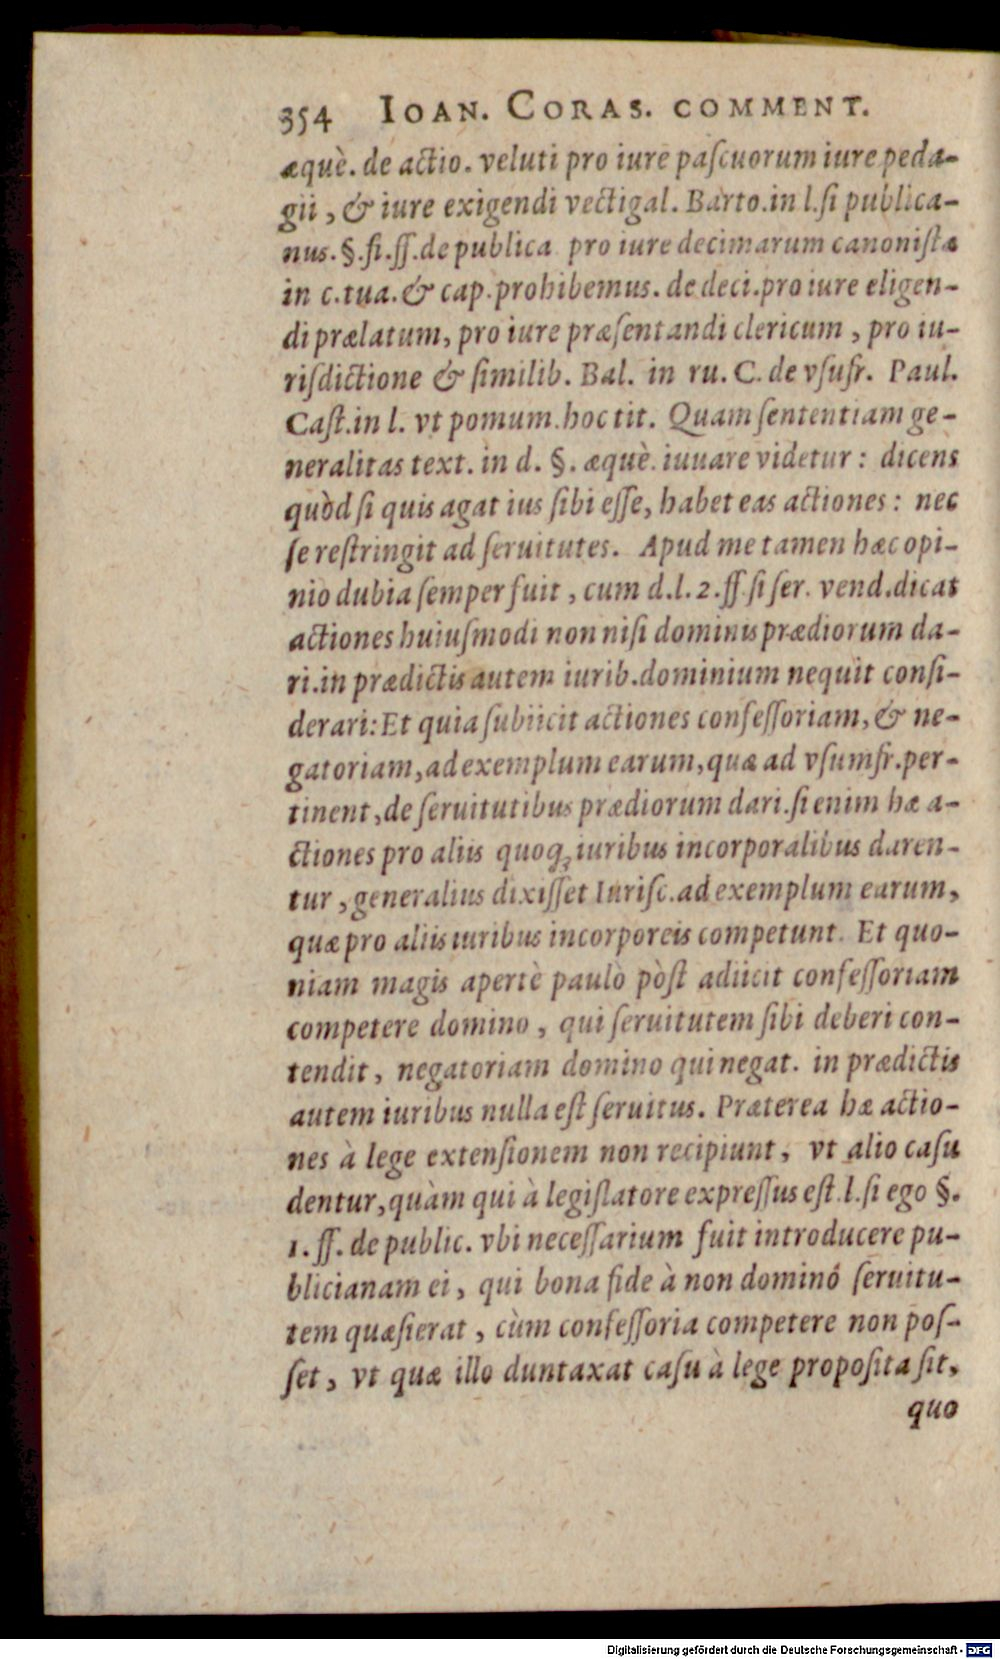 354 IOAN. CORAS. COMMENT.
æquè. de actio. veluti pro iure paſcuorum iure peda-
gii, & iure exigendi vectigal. Barto. in l. ſi publica-
nus. §. fi. ff. de publica pro iure decimarum canoniſtæ
in c. tua. & cap. prohibemus. de deci. pro iure eligen-
di prælatum, pro iure præſentandi clericum, pro iu-
riſdictione & ſimilib. Bal. in ru. C. de vſufr. Paul.
Caſt. in l. vt pomum. hoc tit. Quam ſententiam ge-
neralitas text. in d. §. æquè. iuuare videtur: dicens
quòd ſi quis agat ius ſibi eſſe, habet eas actiones: nec
ſe reſtringit ad ſeruitutes. Apud me tamen hæc opi-
nio dubia ſemper fuit, cum d. l. 2. ff. ſi ſer. vend. dicat
actiones huiuſmodi non niſi dominis prædiorum da-
ri. in prædictis autem iurib. dominium nequit conſi-
derari: Et quia ſubiicit actiones confeſſoriam, & ne-
gatoriam, ad exemplum earum, quæ ad vſumfr. per-
tinent, de ſeruitutibus prædiorum dari. ſi enim hæ a-
ctiones pro aliis quoq; iuribus incorporalibus daren-
tur, generalius dixiſſet Iuriſc. ad exemplum earum,
quæ pro aliis iuribus incorporeis competunt. Et quo-
niam magis apertè paulò pòſt adiicit confeſſoriam
competere domino, qui ſeruitutem ſibi deberi con-
tendit, negatoriam domino qui negat. in prædictis
autem iuribus nulla eſt ſeruitus. Præterea hæ actio-
nes à lege extenſionem non recipiunt, vt alio caſu
dentur, quàm qui à legiſlatore expreſſus eſt. l. ſi ego §.
1. ff. de public. vbi neceſſarium fuit introducere pu-
blicianam ei, qui bona fide à non dominó ſeruitu-
tem quæſierat, cùm confeſſoria competere non poſ-
ſet, vt quæ illo duntaxat caſu à lege propoſita ſit,
quo
Digitalisierung gefördert durch die Deutsche Forschungsgemeinschaft - DFG